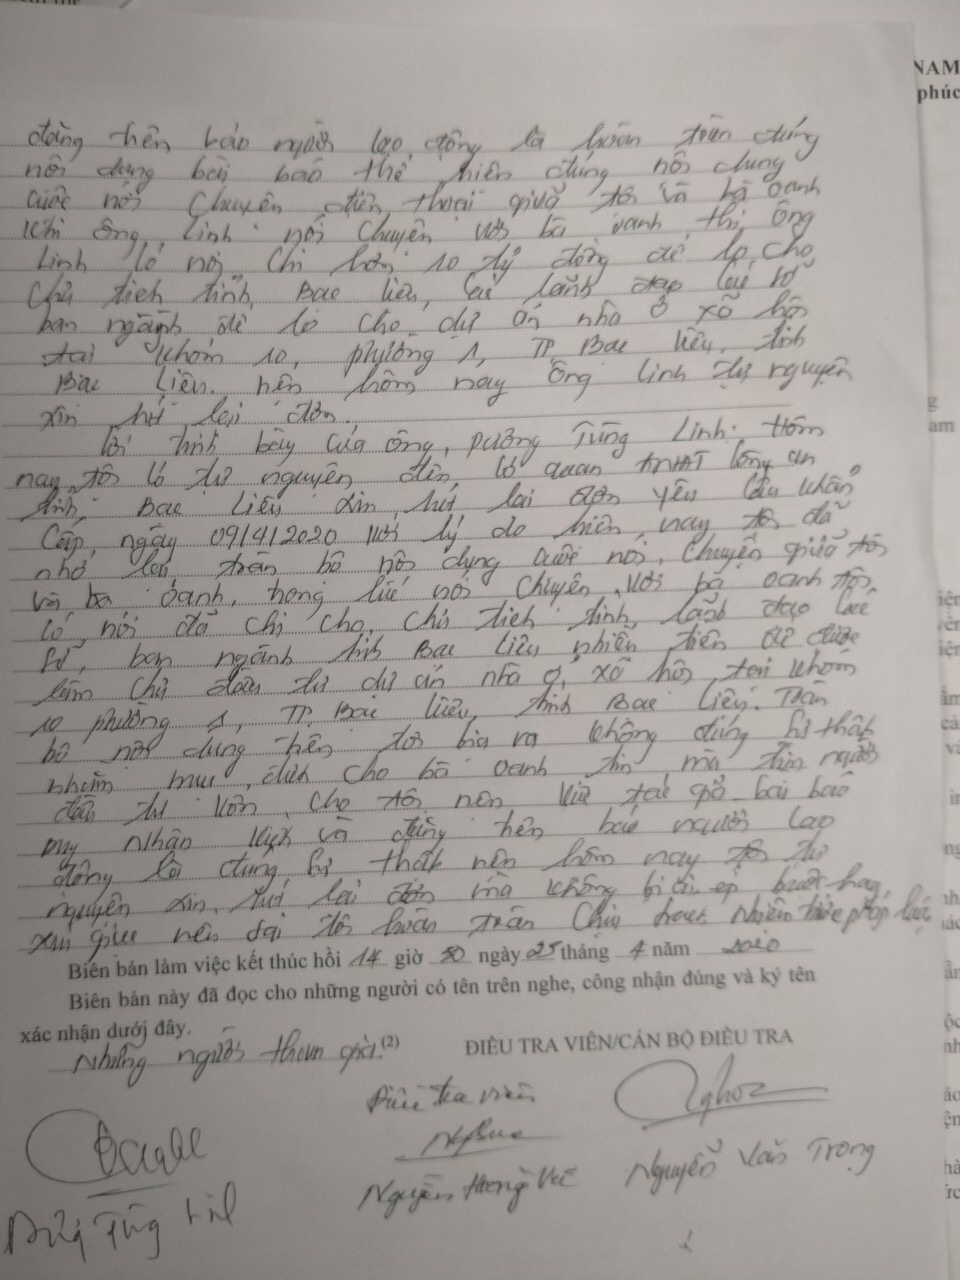 NAM
phúc
đăng trên báo người lao động là hoàn toàn đúng
nội dung bài báo thể hiện đúng nội dung
cuộc nói chuyện điện thoại giữa tôi và bà Oanh
khi ông Linh nói chuyện với bà Oanh thì ông
Linh có nói chi hơn 10 tỷ đồng để lo cho
Chủ tịch tỉnh Bạc Liêu, các lãnh đạo các sở
ban ngành để lo cho dự án nhà ở xã hội
tại khóm 10, phường 1, TP Bạc Liêu, tỉnh
Bạc Liêu. nên hôm nay ông Linh tự nguyện
xin rút lại đơn.
Lời trình bày của ông Trung Linh: Hôm
nay tôi có tự nguyện đến cơ quan Công an
tỉnh Bạc Liêu xin rút lại đơn yêu cầu khẩn
cấp, ngày 09/4/2020 với lý do hiện nay tôi đã
nhớ lại toàn bộ nội dung cuộc nói chuyện giữa tôi
và bà Oanh, trong lúc nói chuyện với bà Oanh tôi
có nói đã chi cho chủ tịch tỉnh, lãnh đạo các
sở, ban ngành tỉnh Bạc Liêu nhiều tiền để được
làm chủ đầu tư dự án nhà ở xã hội tại khóm
10 phường 1, TP. Bạc Liêu, tỉnh Bạc Liêu. Toàn
bộ nội dung trên tôi bịa ra không đúng sự thật
nhằm mục đích cho bà Oanh tin mà tìm người
đầu tư vốn cho tôi nên việc tác giả bài báo
Duy Nhân viết và đăng trên báo người lao
động là đúng sự thật nên hôm nay tôi tự
nguyện xin rút lại đơn mà không bị ai ép buộc hay
xúi giục nên tại tôi hoàn toàn chịu trách nhiệm trước pháp luật
Biên bản làm việc kết thúc hồi 14 giờ 50 ngày 25 tháng 4 năm 2020
Biên bản này đã đọc cho những người có tên trên nghe, công nhận đúng và ký tên
xác nhận dưới đây.
Những người tham gia.(2)
ĐIỀU TRA VIÊN/CÁN BỘ ĐIỀU TRA
Điều tra viên
Nguyễn Văn Trọng